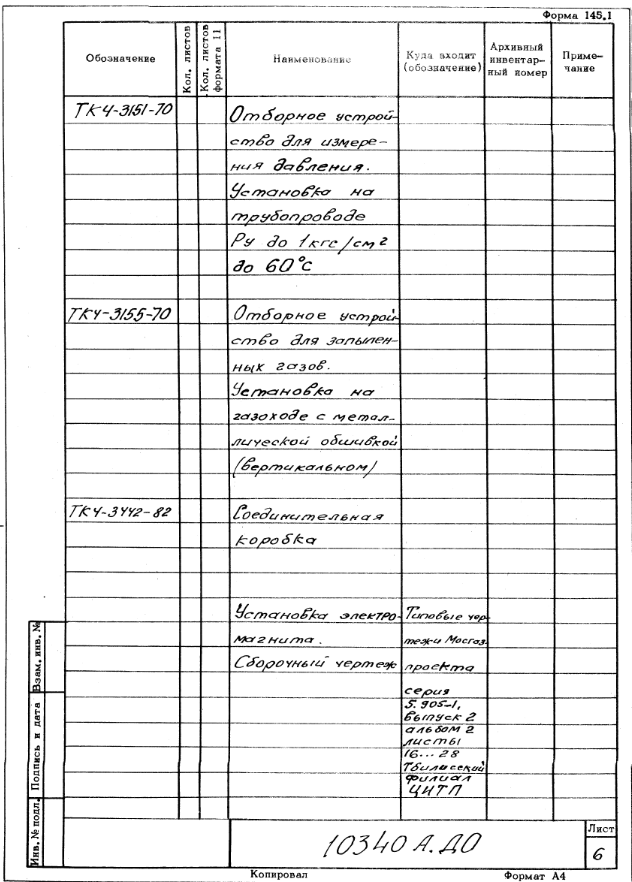 Форма 145.1
Обозначение
Кол. листов
Кол. листов формата 11
Наименование
Куда входит (обозначение)
Архивный инвентар-ный номер
Приме-чание
ТК4-3151-70
Отборное устрой-
ство для измере-
ния давления.
Установка на
трубопроводе
Ру до 1кгс/см2
до 60°С
ТК4-3155-70
Отборное устрой-
ство для запылен-
ных газов.
Установка на
газоходе с метал-
лической обшивкой
(вертикальном)
ТК4-3442-82
Соединительная
коробка
Установка электро- Типовые чер-
магнита. тежи Мосгаз-
Сборочный чертеж проекта
серия
5.905-1,
выпуск 2
альбом 2
листы
16...28
Тбилисский
филиал
ЦИТП
Взам. инв. №
Подпись и дата
Инв. № подл.
10340 А.ДО
Лист
6
Копировал
Формат А4